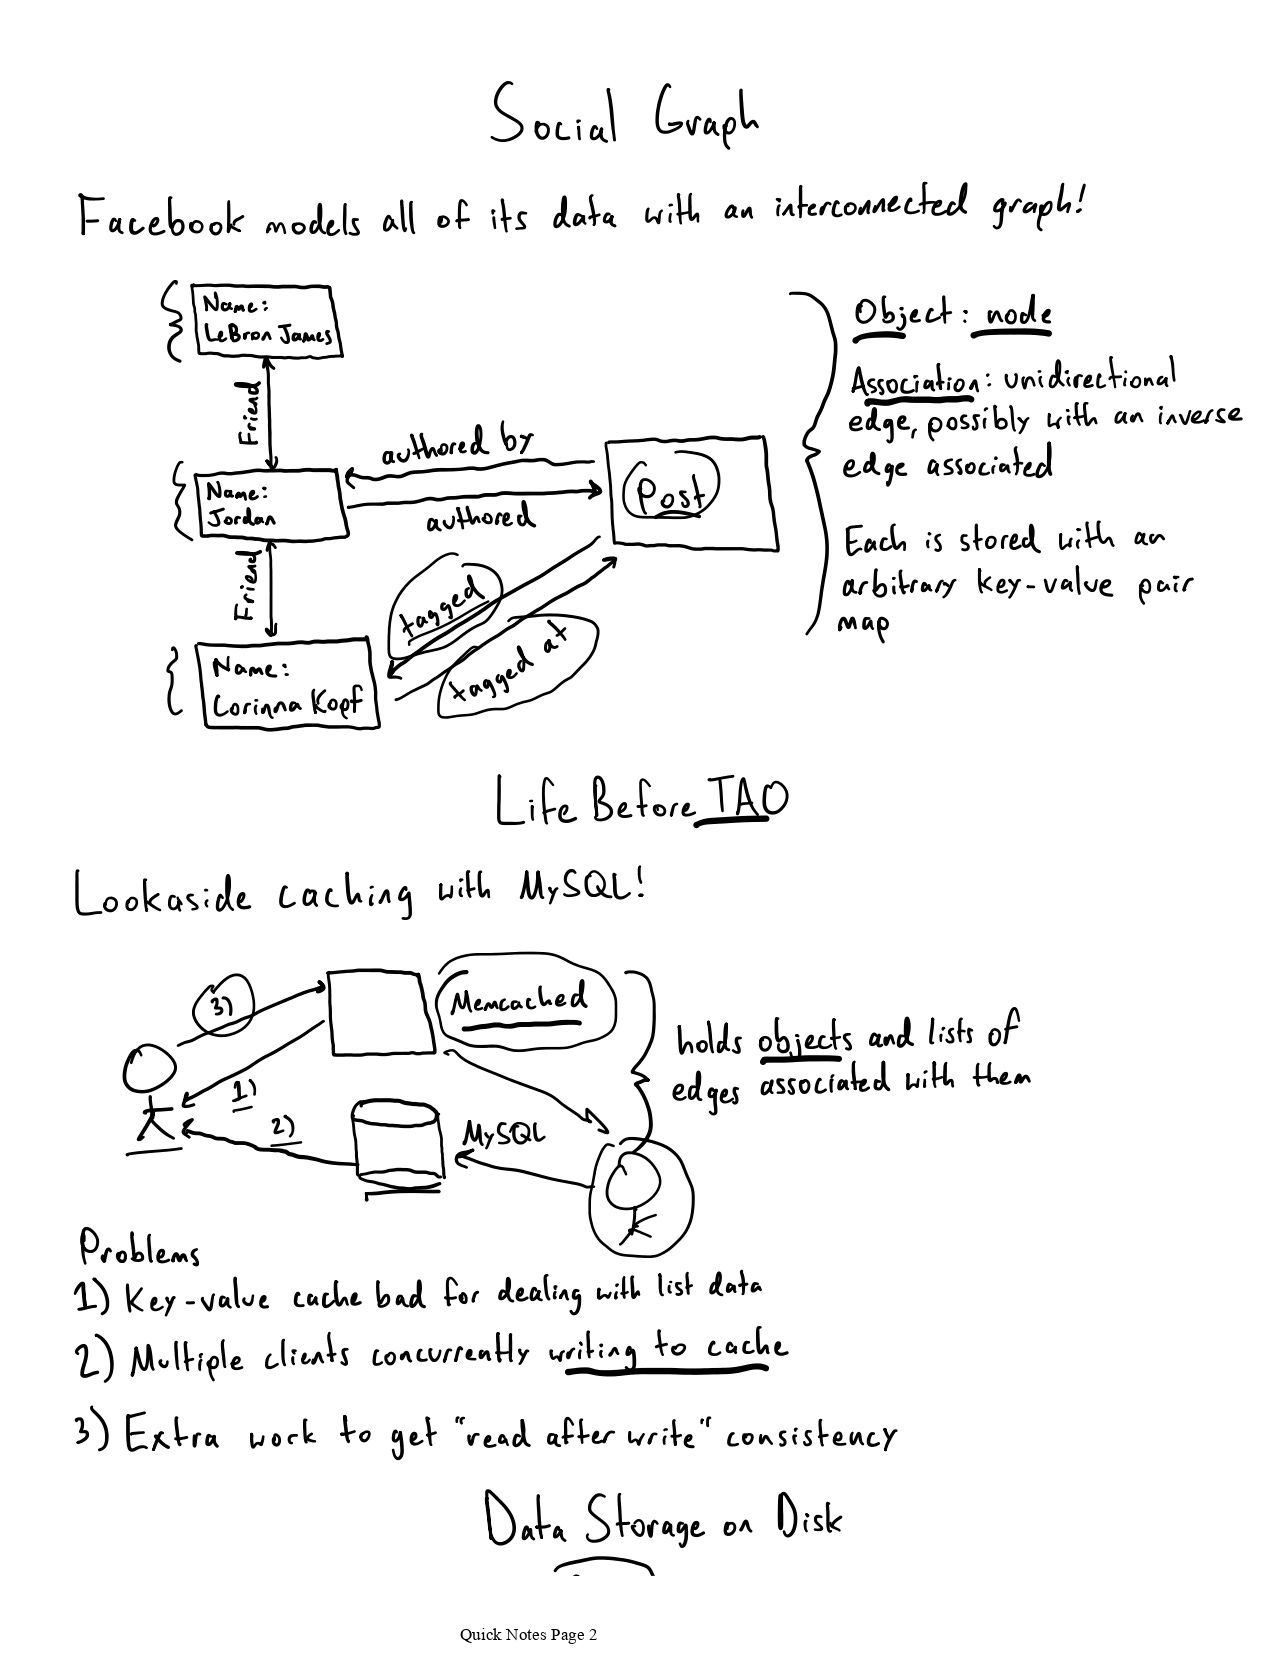 Social Graph
Facebook models all of its data with an interconnected graph!
Name:
LeBron James
Friend
Name:
Jordan
Friend
Name:
Corinna Kopf
authored by
authored
tagged
tagged at
Post
Object: node
Association: unidirectional
edge, possibly with an inverse
edge associated
Each is stored with an
arbitrary key-value pair
map
Life Before TAO
Lookaside caching with MySQL!
3)
1)
2)
Memcached
MySQL
holds objects and lists of
edges associated with them
Problems
1) Key-value cache bad for dealing with list data
2) Multiple clients concurrently writing to cache
3) Extra work to get "read after write" consistency
Data Storage on Disk
Quick Notes Page 2